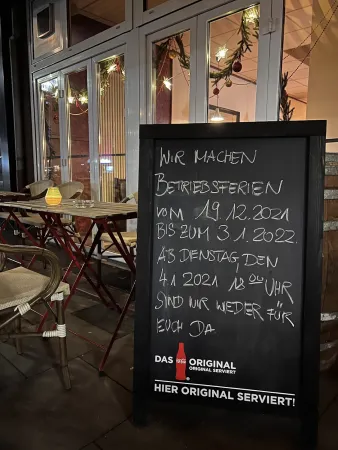 WIR MACHEN
BETRIEBSFERIEN
VOM 19.12.2021
BIS ZUM 3.1.2022.
AB DIENSTAG, DEN
4.1.2021 18 00 UHR
SIND WIR WIEDER FÜR
EUCH DA
DAS ORIGINAL
ORIGINAL SERVIERT
HIER ORIGINAL SERVIERT!